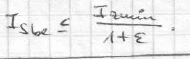 I_Sbe ≤ I_zmin / 1+ε .